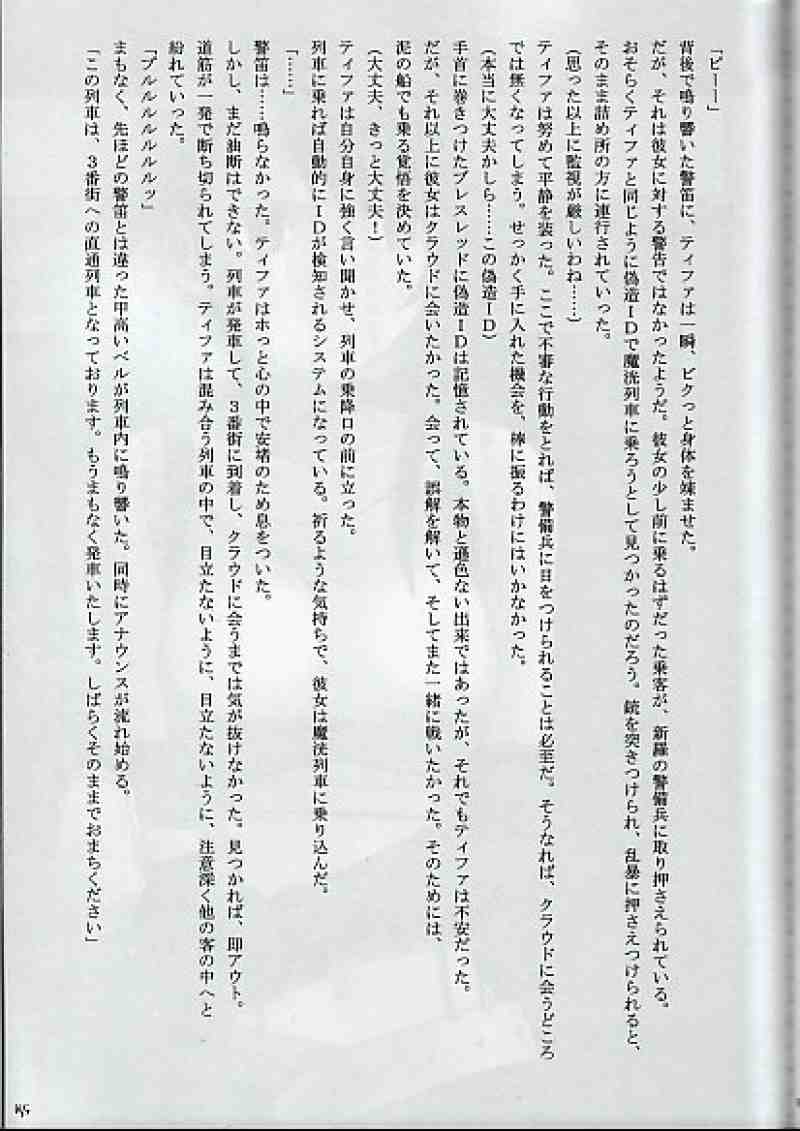 「ピーー」
背後で鳴り響いた警笛に、ティファは一瞬、ビクっと身体を竦ませた。
だが、それは彼女に対する警告ではなかったようだ。彼女の少し前に乗るはずだった乗客が、新羅の警備兵に取り押さえられている。
おそらくティファと同じように偽造ＩＤで魔洸列車に乗ろうとして見つかったのだろう。銃を突きつけられ、乱暴に押さえつけられると、
そのまま詰め所の方に連行されていった。
（思った以上に監視が厳しいわね……）
ティファは努めて平静を装った。ここで不審な行動をとれば、警備兵に目をつけられることは必至だ。そうなれば、クラウドに会うどころ
では無くなってしまう。せっかく手に入れた機会を、棒に振るわけにはいかなかった。
（本当に大丈夫かしら……この偽造ＩＤ）
手首に巻きつけたブレスレッドに偽造ＩＤは記憶されている。本物と遜色ない出来ではあったが、それでもティファは不安だった。
だが、それ以上に彼女はクラウドに会いたかった。会って、誤解を解いて、そしてまた一緒に戦いたかった。そのためには、
泥の船でも乗る覚悟を決めていた。
（大丈夫、きっと大丈夫！）
ティファは自分自身に強く言い聞かせ、列車の乗降口の前に立った。
列車に乗れば自動的にＩＤが検知されるシステムになっている。祈るような気持ちで、彼女は魔洸列車に乗り込んだ。
「……」
警笛は……鳴らなかった。ティファはホっと心の中で安堵のため息をついた。
しかし、まだ油断はできない。列車が発車して、３番街に到着し、クラウドに会うまでは気が抜けなかった。見つかれば、即アウト。
道筋が一発で断ち切られてしまう。ティファは混み合う列車の中で、目立たないように、目立たないように、注意深く他の客の中へと
紛れていった。
「プルルルルルルルッ」
まもなく、先ほどの警笛とは違った甲高いベルが列車内に鳴り響いた。同時にアナウンスが流れ始める。
「この列車は、３番街への直通列車となっております。もうまもなく発車いたします。しばらくそのままでおまちください」